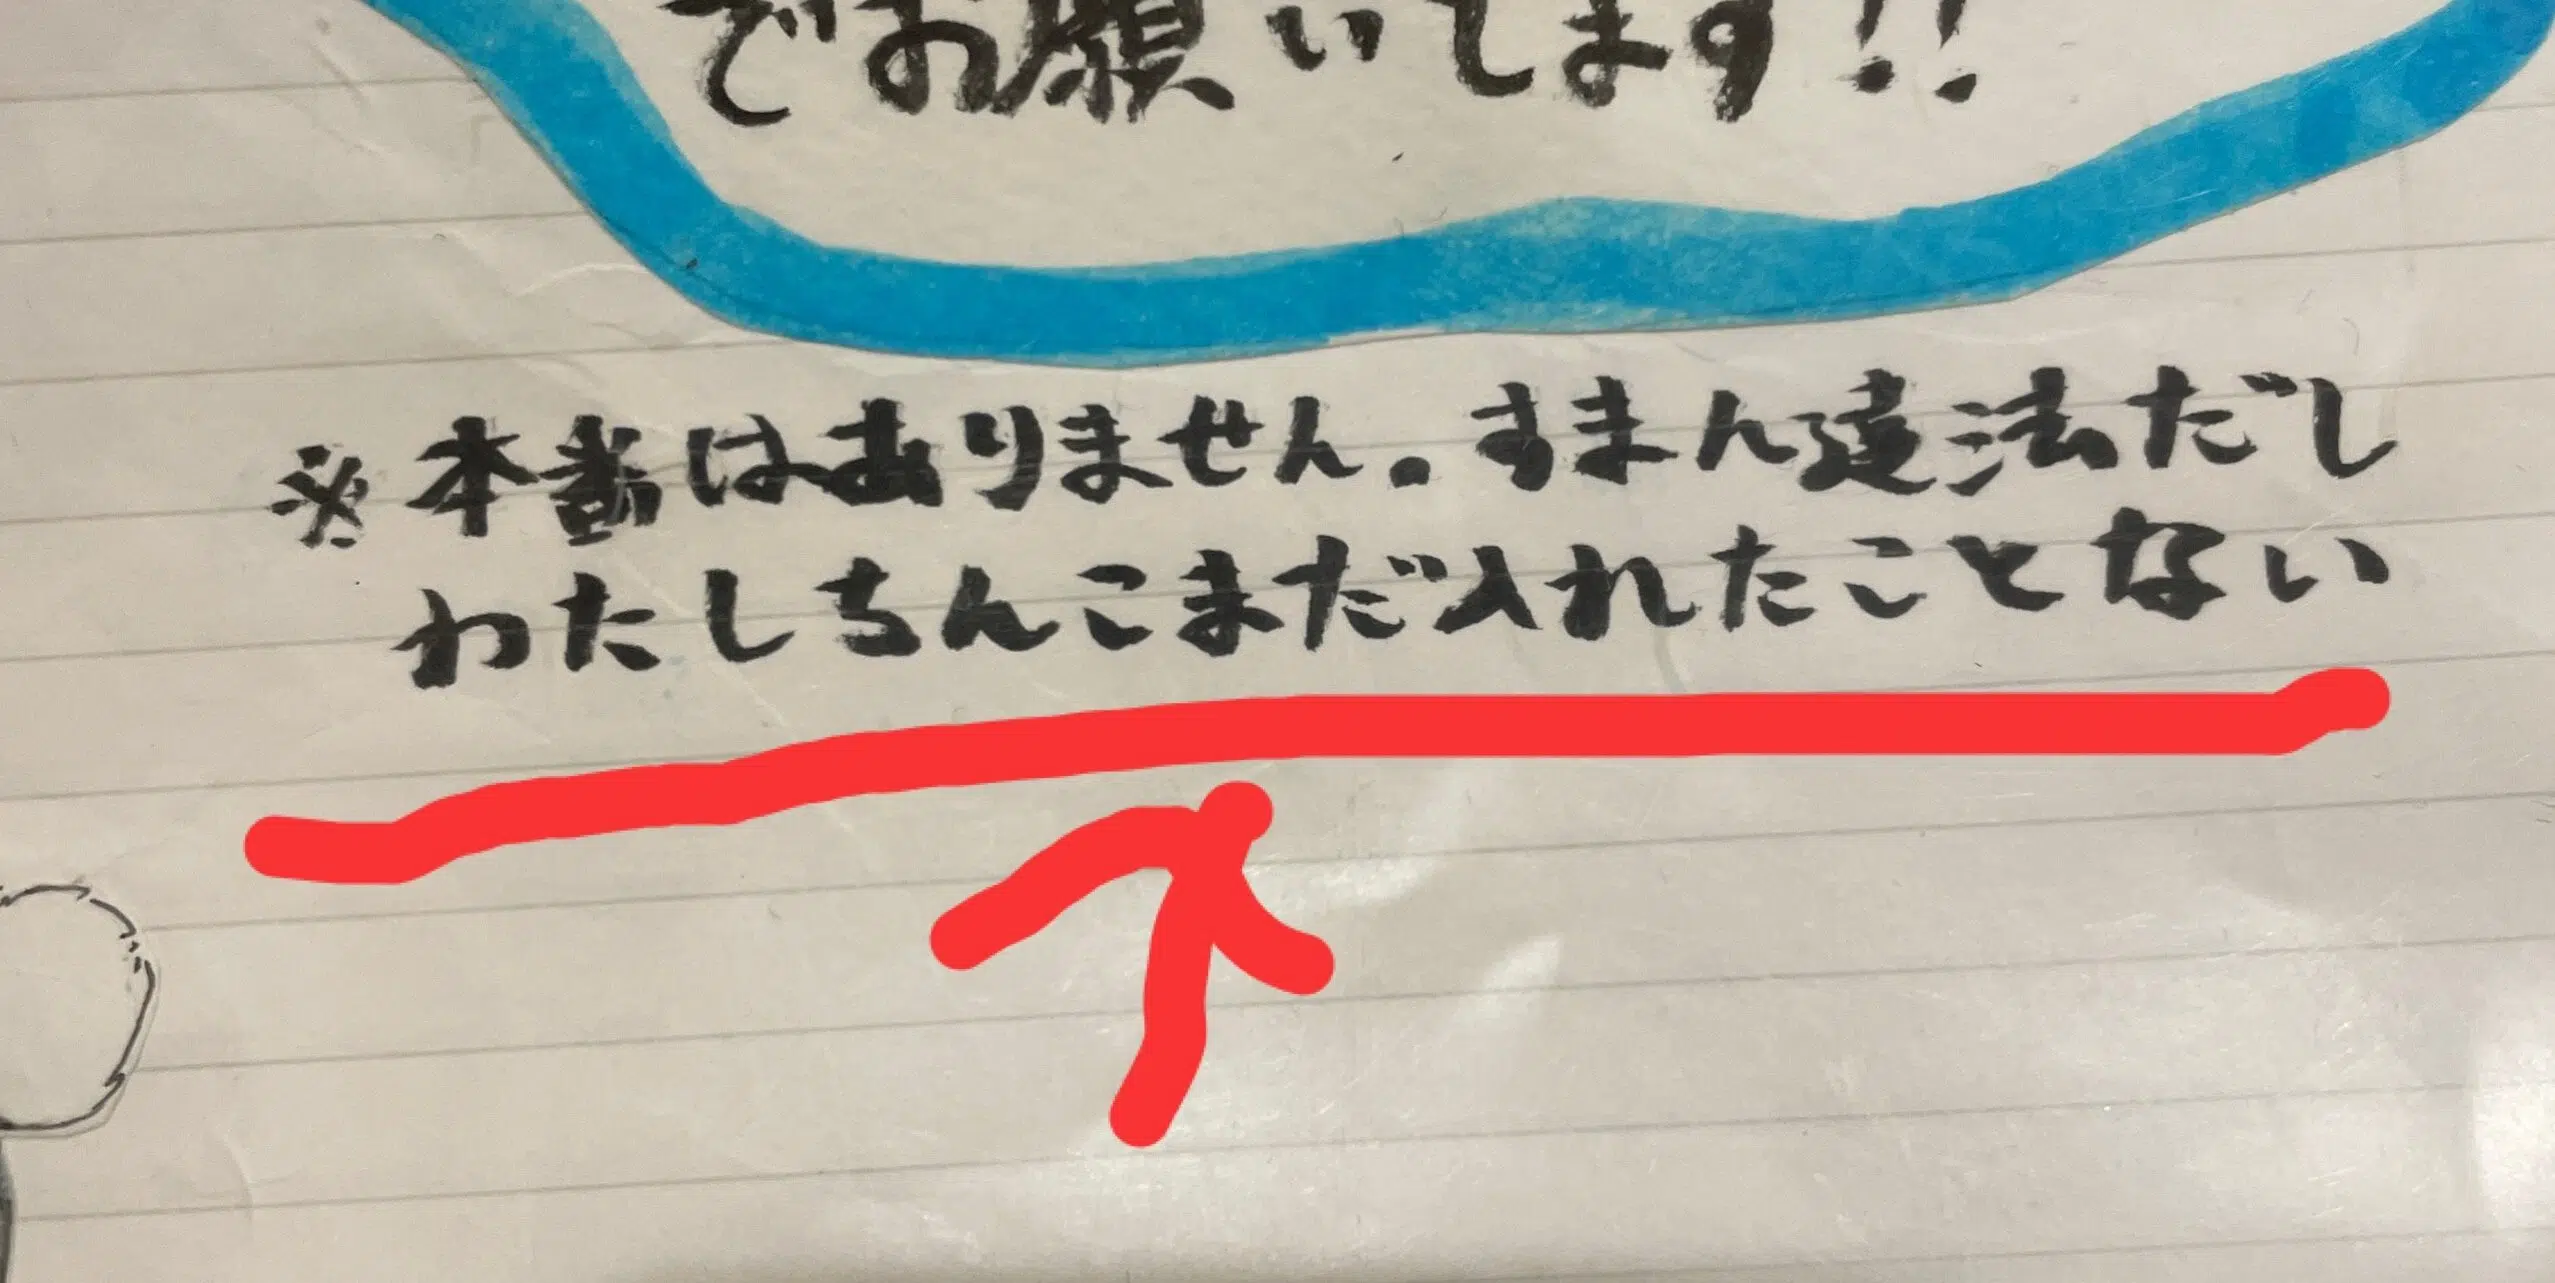 でお願いします!!
※本番はありません。すまん違法だし
わたしちんこまだ入れたことない